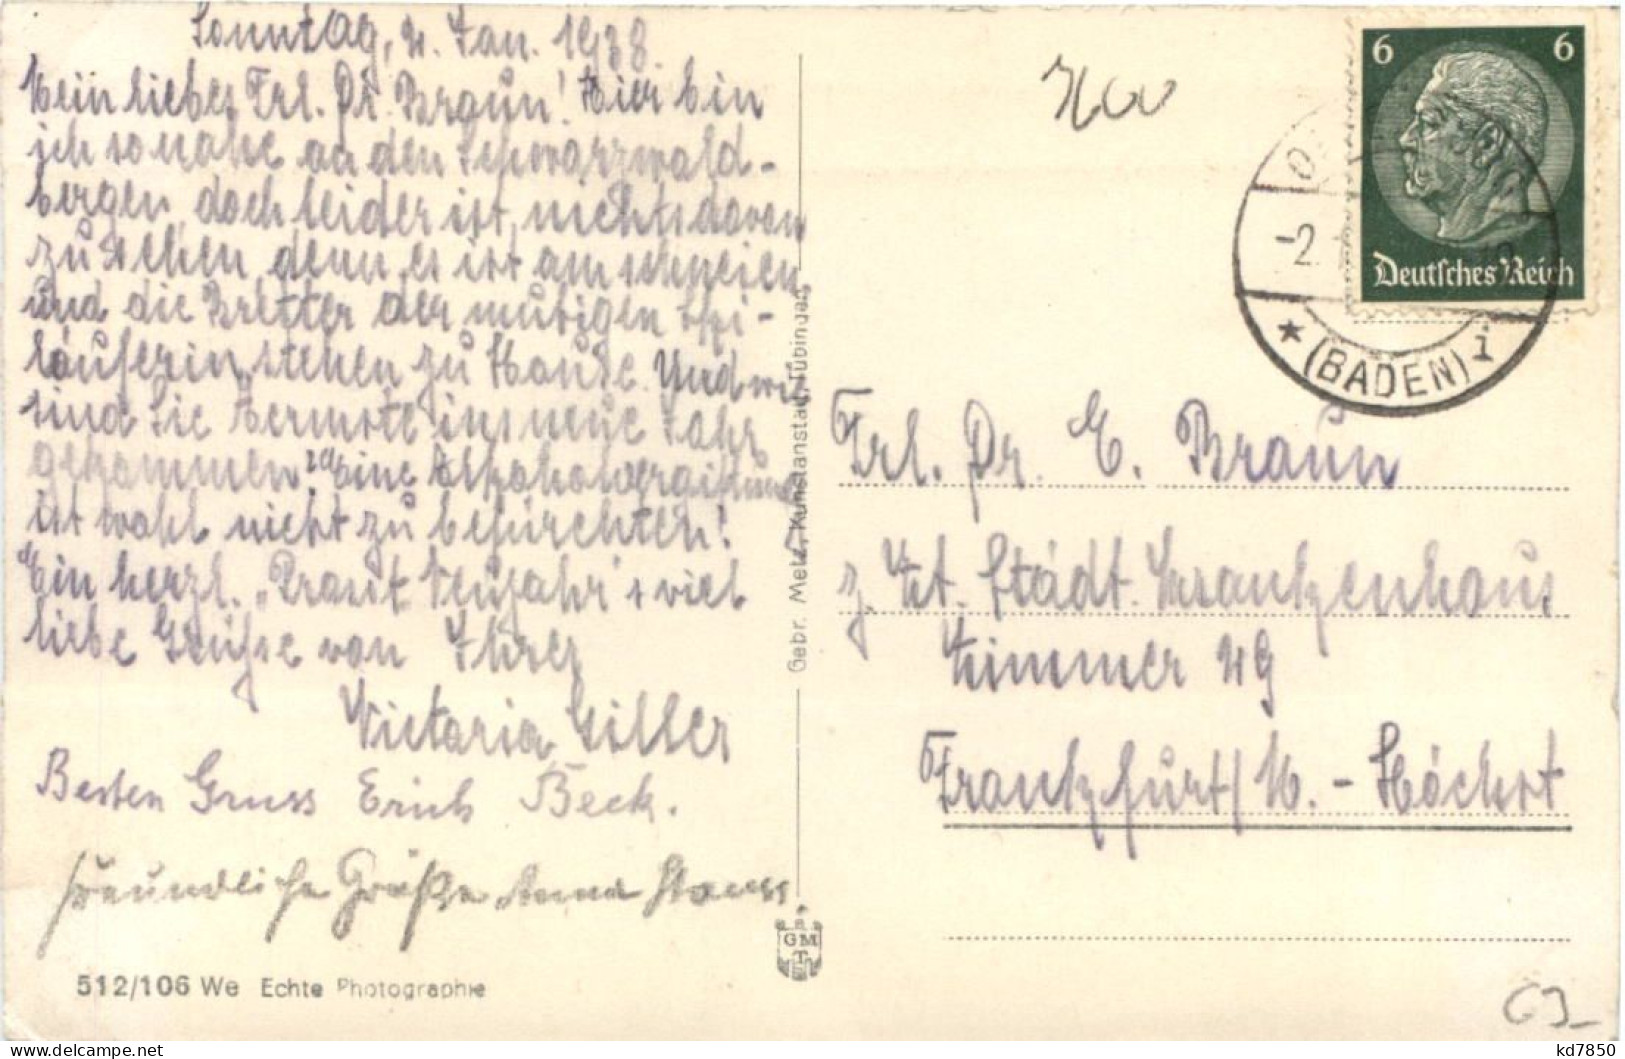 Sonntag, 2. Jan. 1938.
Mein liebes Frl. Dr. Braun! Hier bin
ich so nahe an den Schwarzwald-
bergen, doch leider ist nichts davon
zu sehen, denn es ist am schneien
und die Bretter der mutigen Ski-
läuferin stehen zu Hause. Und wie
sind Sie Ärmste ins neue Jahr
gekommen? Eine Alkoholvergiftung
ist wohl nicht zu befürchten!
Ein herzl. „Prosit Neujahr" + viel
liebe Grüsse von Ihrer
Victoria
Besten Gruss Erich Beck.
freundliche Grüße Anna
512/106 We Echte Photographie
Gebr. Metz, Kunstanstalt, Tübingen
GMT
6 6
Deutsches Reich
-2.
(BADEN)
Frl. Dr. E. Braun
z. Zt. Städt. Krankenhaus
Zimmer 29
Frankfurt/M. - Höchst
kd7850